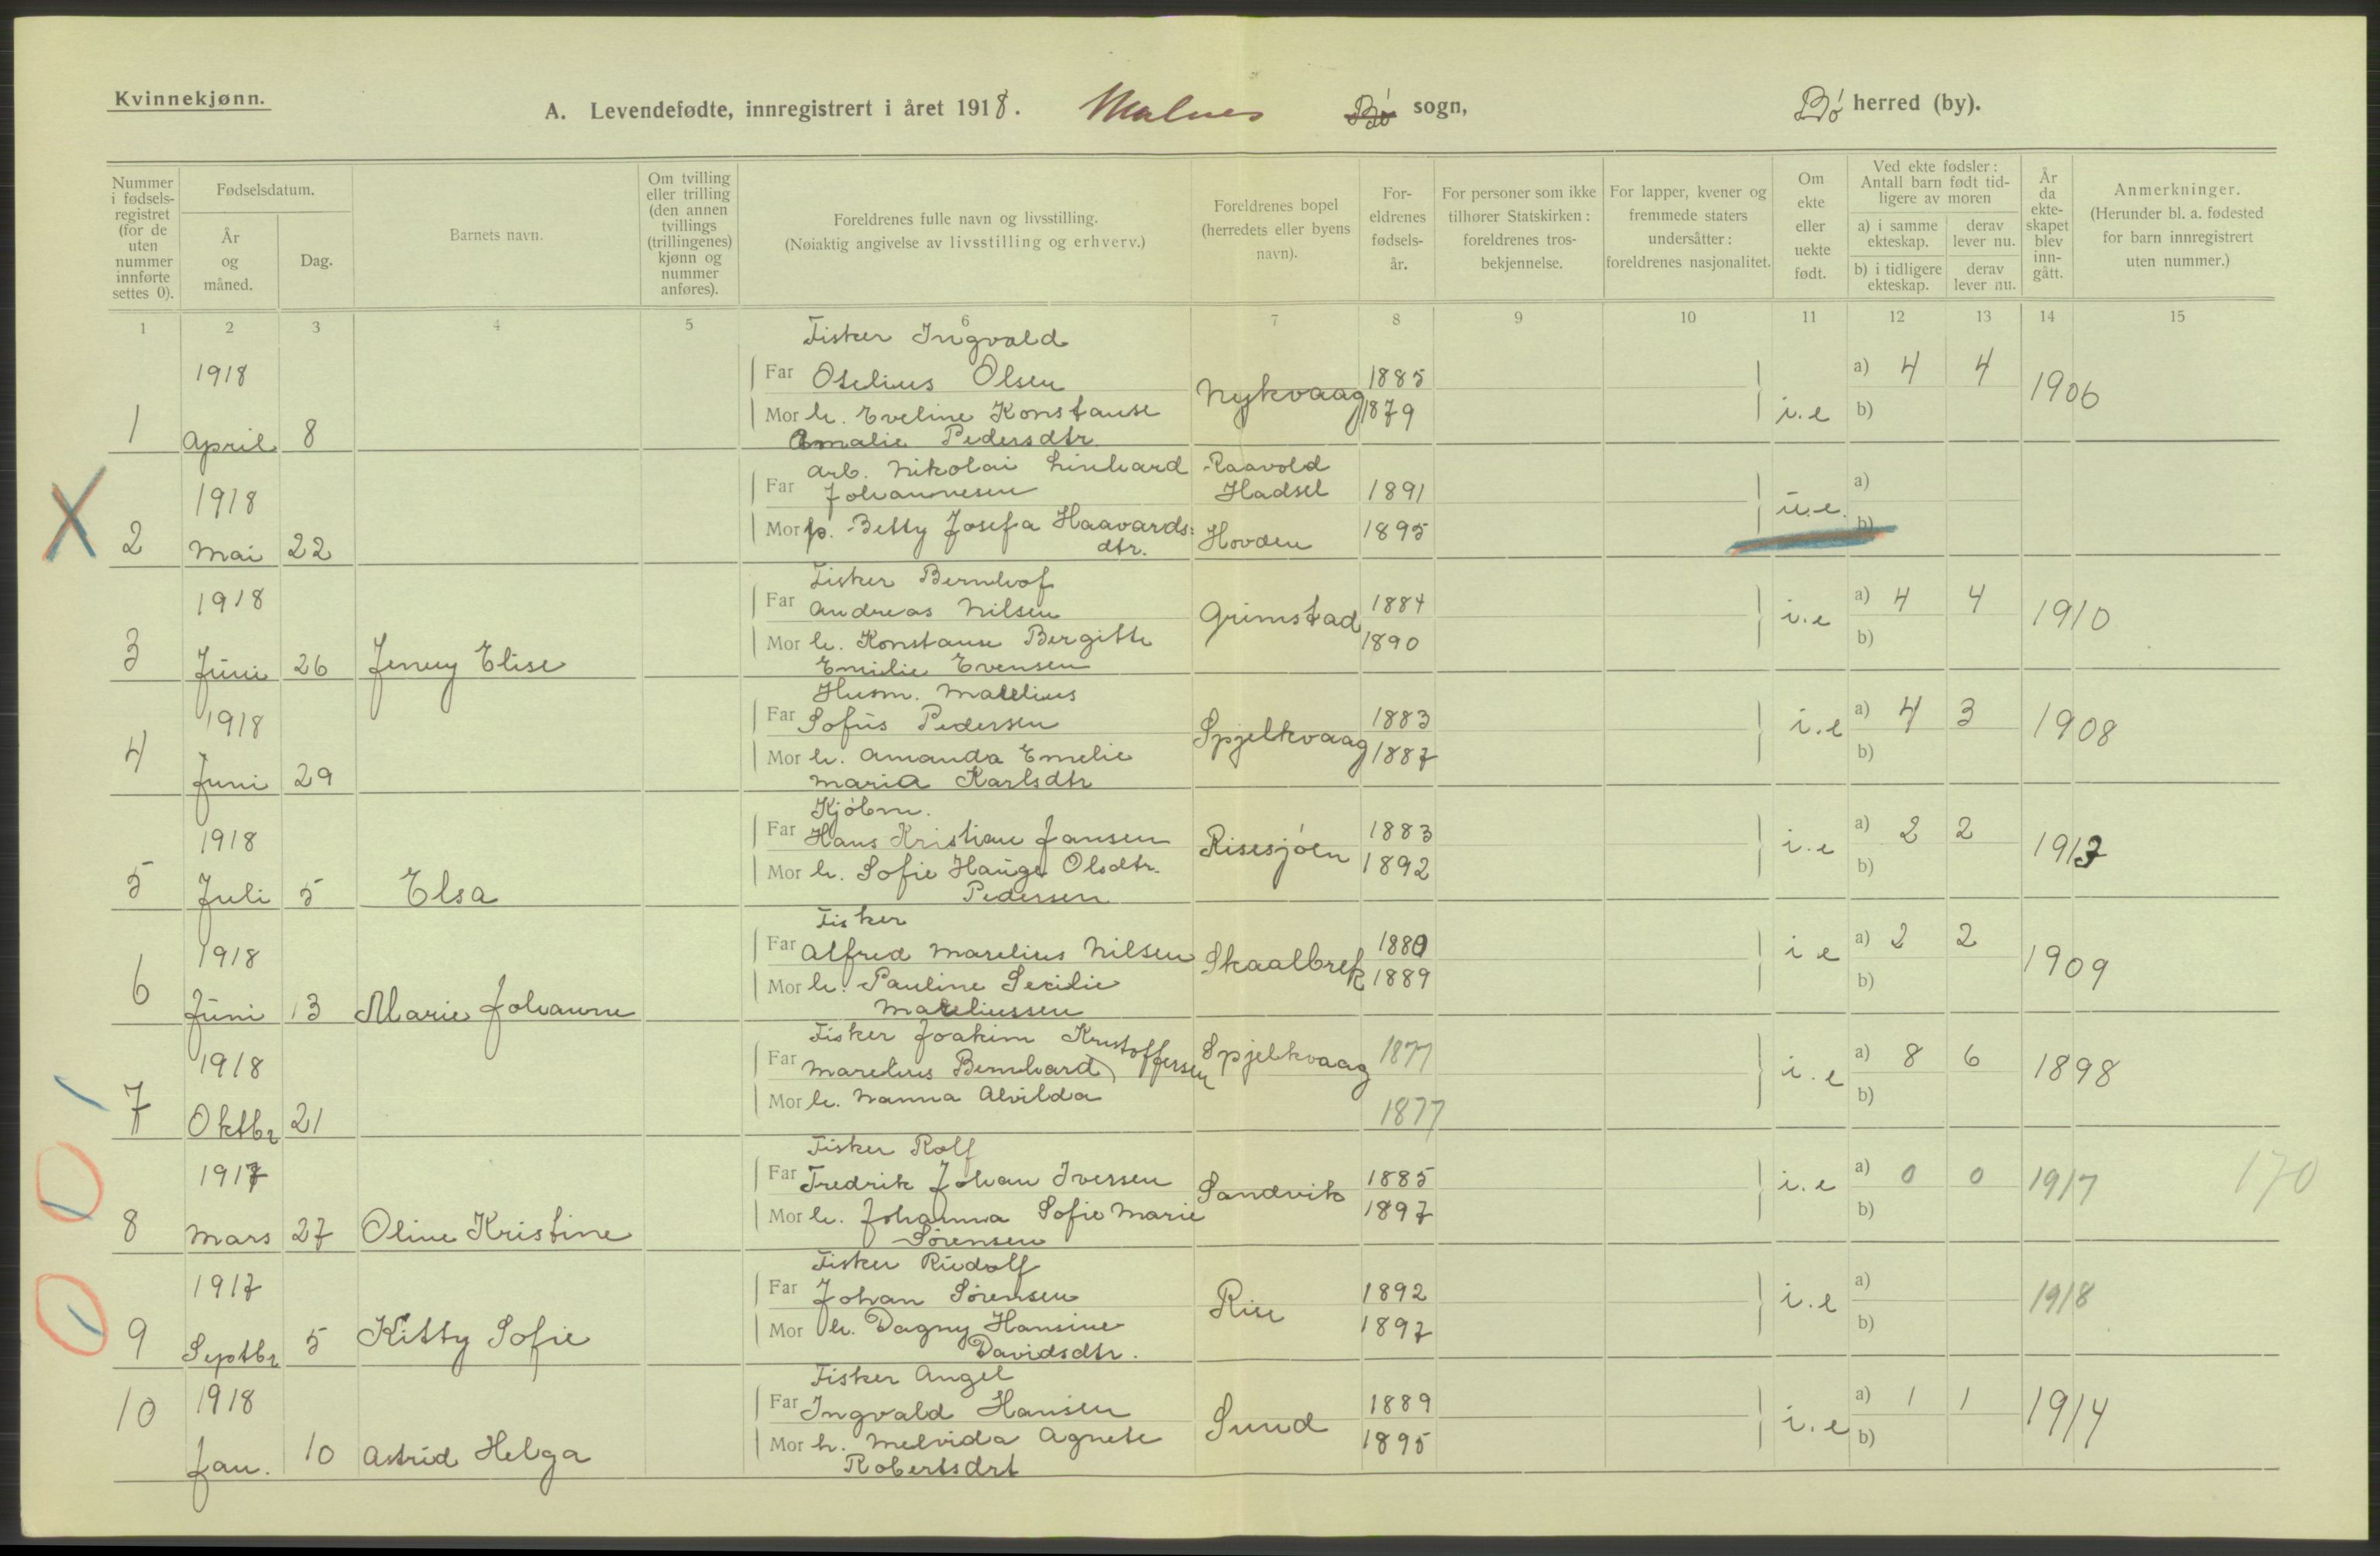 Kvinnekjønn.
A. Levendefødte, innregistrert i året 1918. Malnes Bø sogn, Bø herred (by).
Nummer i fødsels-registret (for de uten nummer innførte settes 0).
Fødselsdatum.
År og måned.
Dag.
Barnets navn.
Om tvilling eller trilling (den annen tvillings (trillingenes) kjønn og nummer anføres).
Foreldrenes fulle navn og livsstilling.
(Nøiaktig angivelse av livsstilling og erhverv.)
Foreldrenes bopel (herredets eller byens navn).
For-eldrenes fødsels-år.
For personer som ikke tilhører Statskirken: foreldrenes tros-bekjennelse.
For lapper, kvener og fremmede staters undersåtter: foreldrenes nasjonalitet.
Om ekte eller uekte født.
Ved ekte fødsler: Antall barn født tid-ligere av moren
a) i samme ekteskap.
derav lever nu.
b) i tidligere ekteskap.
derav lever nu.
År da ekte-skapet blev inn-gått.
Anmerkninger.
(Herunder bl. a. fødested for barn innregistrert uten nummer.)
1 2 3 4 5 6 7 8 9 10 11 12 13 14 15
Fisker Ingvald
1918 Far Otelius Olsen Nykvaag 1885 a) 4 4 1906
Mor h. Eveline Konstanse 1879 i.e b)
1 April 8 Amalie Pedersdtr
Arb. Nikolai Linhard Raavold
1918 Far Johannesen Hadsel 1891 u.e. a)
Mor p. Betty Josefa Haavards: Hovden 1895 b)
2 Mai 22 dtr.
Fisker Bernhof
1918 Far Andreas Nilsen Grimstad 1884 i.e a) 4 4 1910
Mor h. Konstanse Bergitte 1890 b)
3 Juni 26 Jenny Elise Emilie Evensen
Husm. Matelius
1918 Far Sofus Pedersen Spjelkvaag 1883 i.e a) 4 3 1908
4 Mor h. Amanda Emelie 1887 b)
Juni 29 Maria Karlsdtr
Kjøbm.
1918 Far Hans Kristian Jansen Risesjøen 1883 i.e a) 2 2 1913
Mor h. Sofie Hauge Olsdtr. 1892 b)
5 Juli 5 Elsa Pedersen
Fisker
1918 Far Alfred Marelius Nilsen Skaalbrek 1880 i e a) 2 2 1909
Mor h. Pauline Sesilie 1889 b)
6 Juni 13 Marie Johanne Mareliussen
Fisker Joakim Kristoffersen
1918 Far Marelius Bernhard Spjelkvaag 1877 i.e a) 8 6 1898
Mor h. Nanna Alvilda 1877 b)
7 Oktbr 21
Fisker Rolf
1917 Far Fredrik Johan Iversen Sandvik 1885 i.e a) 0 0 1917 170
Mor h. Johanna Sofie Marie 1897 b)
8 Mars 27 Oline Kristine Sørensen
Fisker Rudolf
1917 Far Johan Sørensen Rise 1892 i.e a) 1918
Mor h. Dagny Hansine 1897 b)
9 Septbr 5 Kitty Sofie Davidsdtr.
Fisker Angel
10 1918 Far Ingvald Hansen Sund 1889 i.e a) 1 1 1914
Mor h. Melvida Agnete 1895 b)
Jan. 10 Astrid Helga Robertsdrt